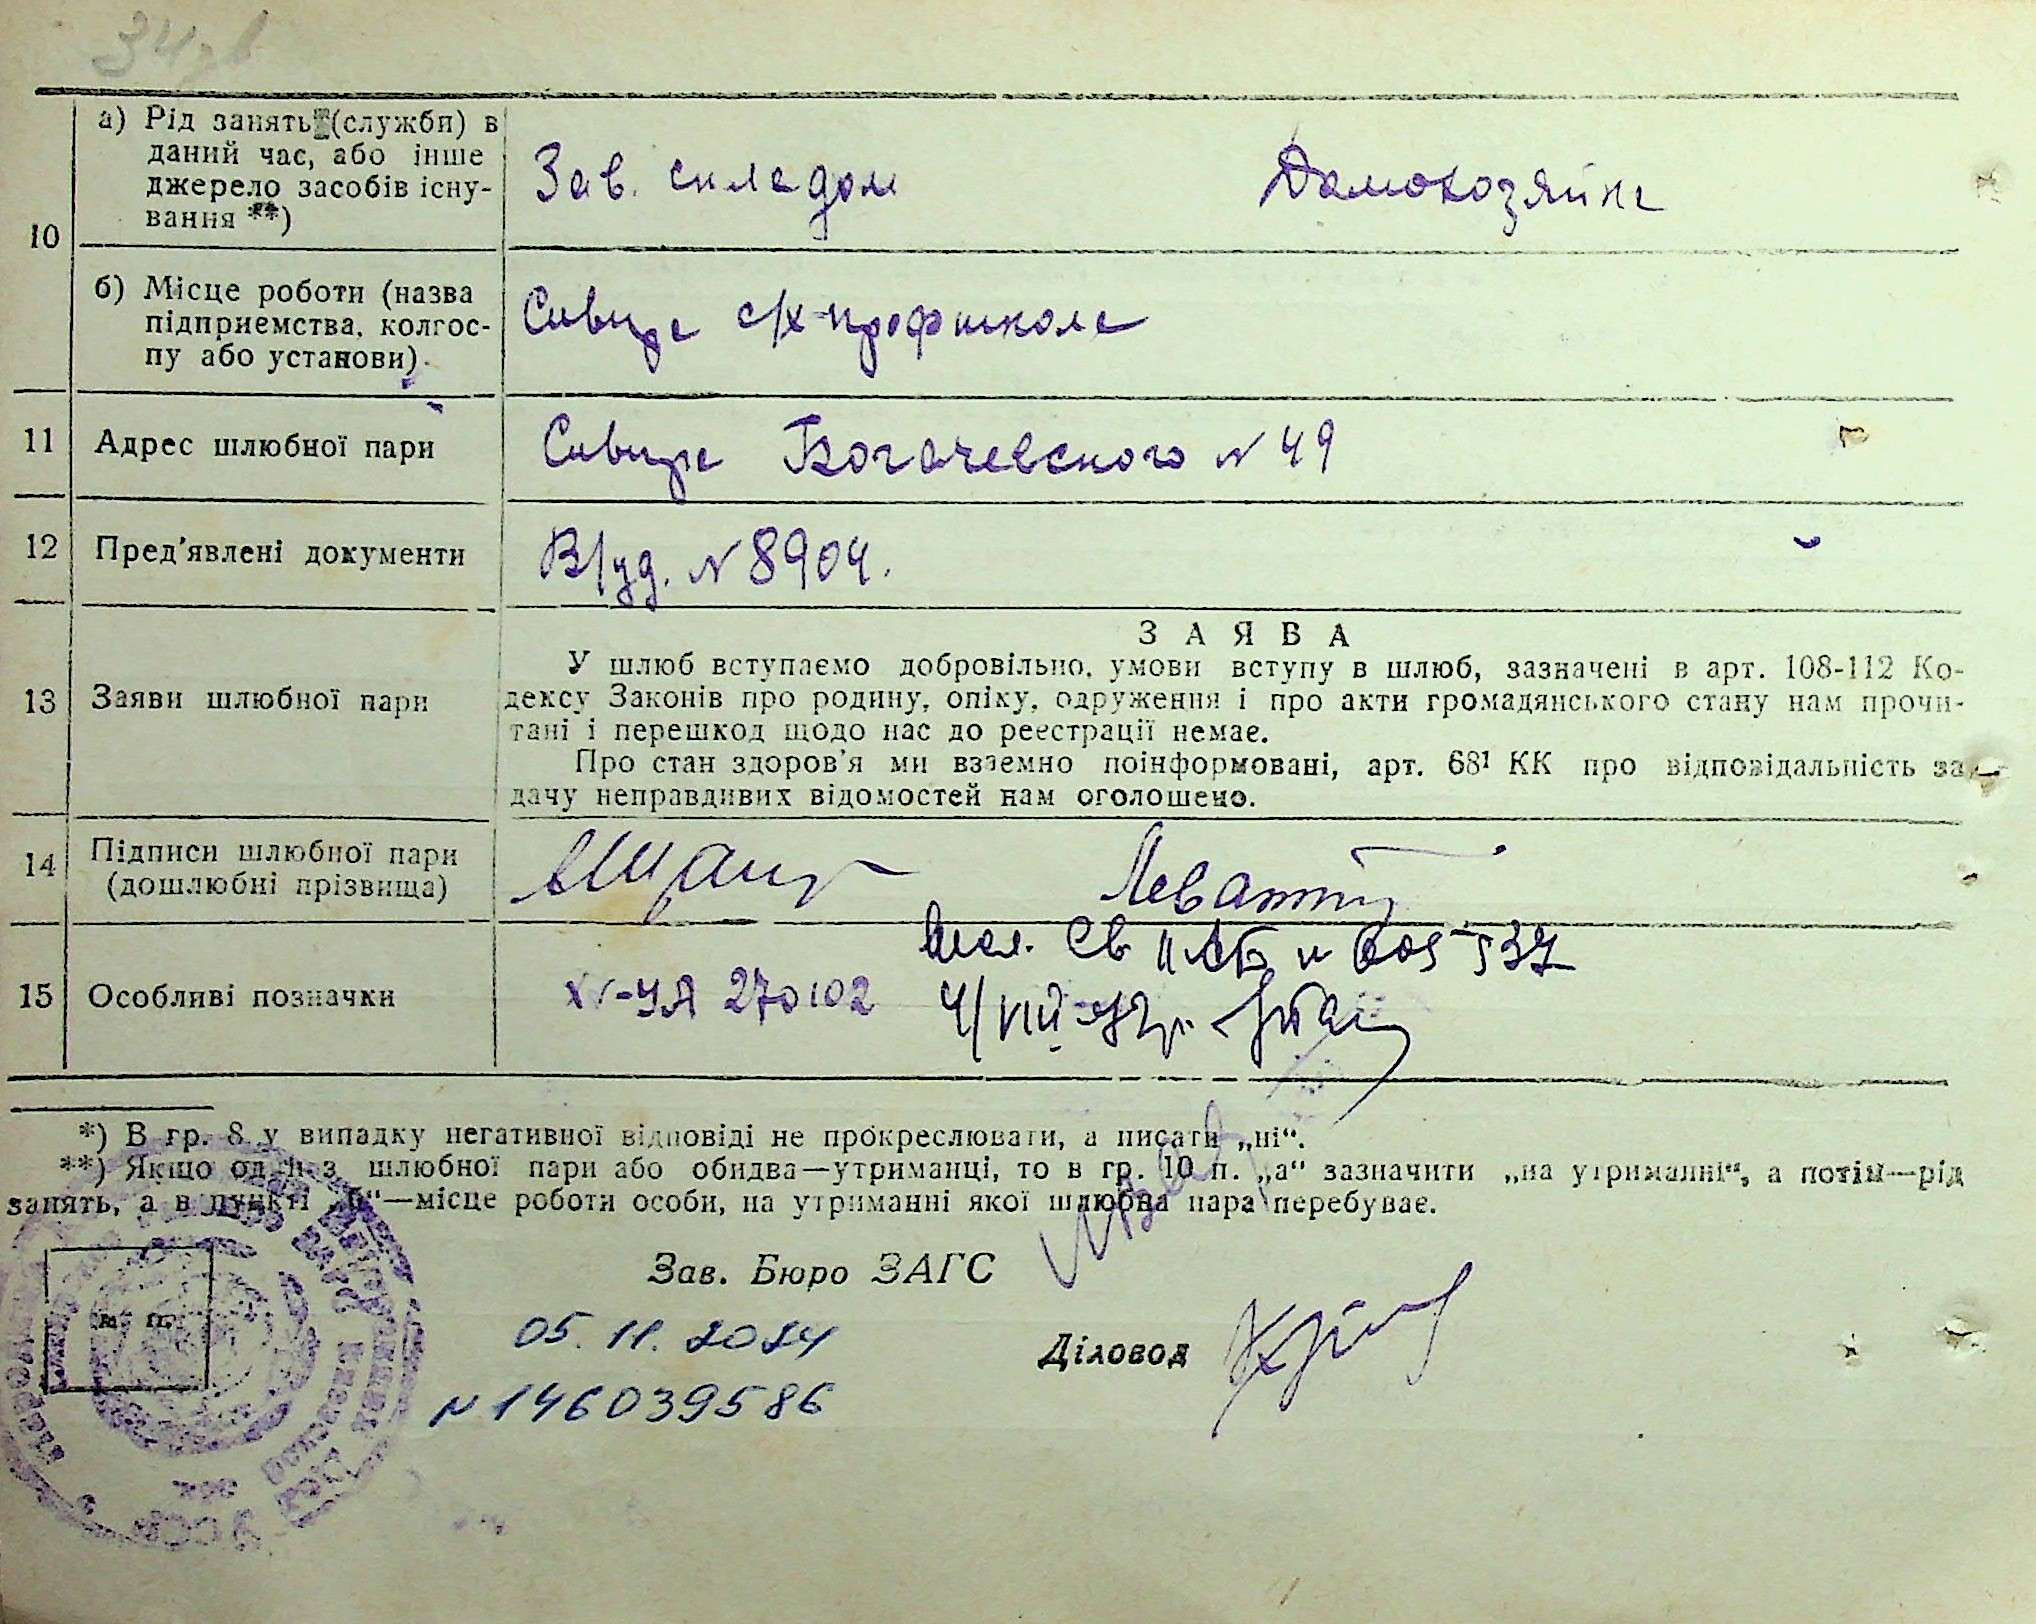 34зв
10
а) Рід занять (служби) в
даний час, або інше
джерело засобів існу-
вання **)
Зав. складом
Домохозяйка
б) Місце роботи (назва
підприємства, колгос-
пу або установи)
Сквира с/х-профшкола
11
Адрес шлюбної пари
Сквира Богачевского N 49
12
Пред'явлені документи
В/уд. N 8904.
13
Заяви шлюбної пари
ЗАЯВА
У шлюб вступаємо добровільно, умови вступу в шлюб, зазначені в арт. 108-112 Ко-
дексу Законів про родину, опіку, одруження і про акти громадянського стану нам прочи-
тані і перешкод щодо нас до реєстрації немає.
Про стан здоров'я ми взаємно поінформовані, арт. 68¹ КК про відповідальність за
дачу неправдивих відомостей нам оголошено.
14
Підписи шлюбної пари
(дошлюбні прізвища)
15
Особливі позначки
-УЯ 270102
Св II АБ N 605537
*) В гр. 8 у випадку негативної відповіді не прокреслювати, а писати „ні“.
**) Якщо один з шлюбної пари або обидва—утриманці, то в гр. 10 п. „а“ зазначити „на утриманні“, а потім—рід
занять, а в пункті „б“—місце роботи особи, на утриманні якої шлюбна пара перебуває.
Зав. Бюро ЗАГС
м. п.
05.11.2024
Діловод
N 146039586